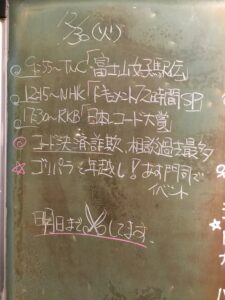 12/30(火)
◎9:55〜TNC「富士山女子駅伝」
◎12:45〜NHK「ドキュメント72時間」SP
◎17:30〜RKB「日本レコード大賞」
◎コード決済詐欺、相談過去最多
☆ゴリパラと年越し!あす門司で
イベント
明日まで してます